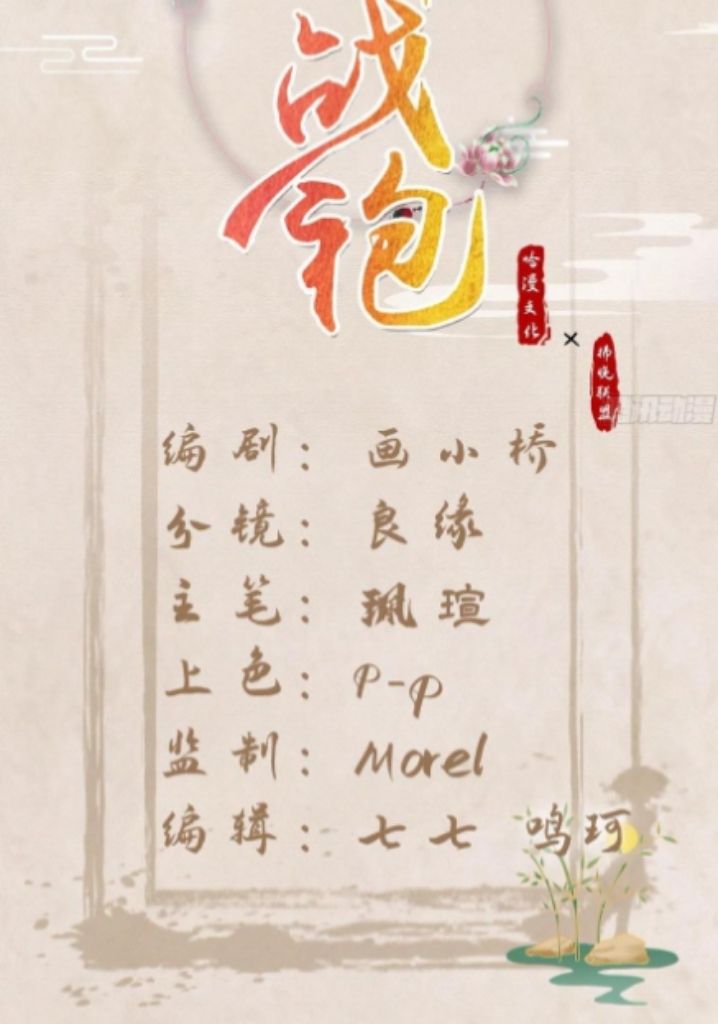 战
袍
哈漫文化
×
拂晓联盟
腾讯动漫
编剧： 画小桥
分镜： 良缘
主笔： 珮瑄
上色： p-p
监制： Morel
编辑： 七七 鸣珂